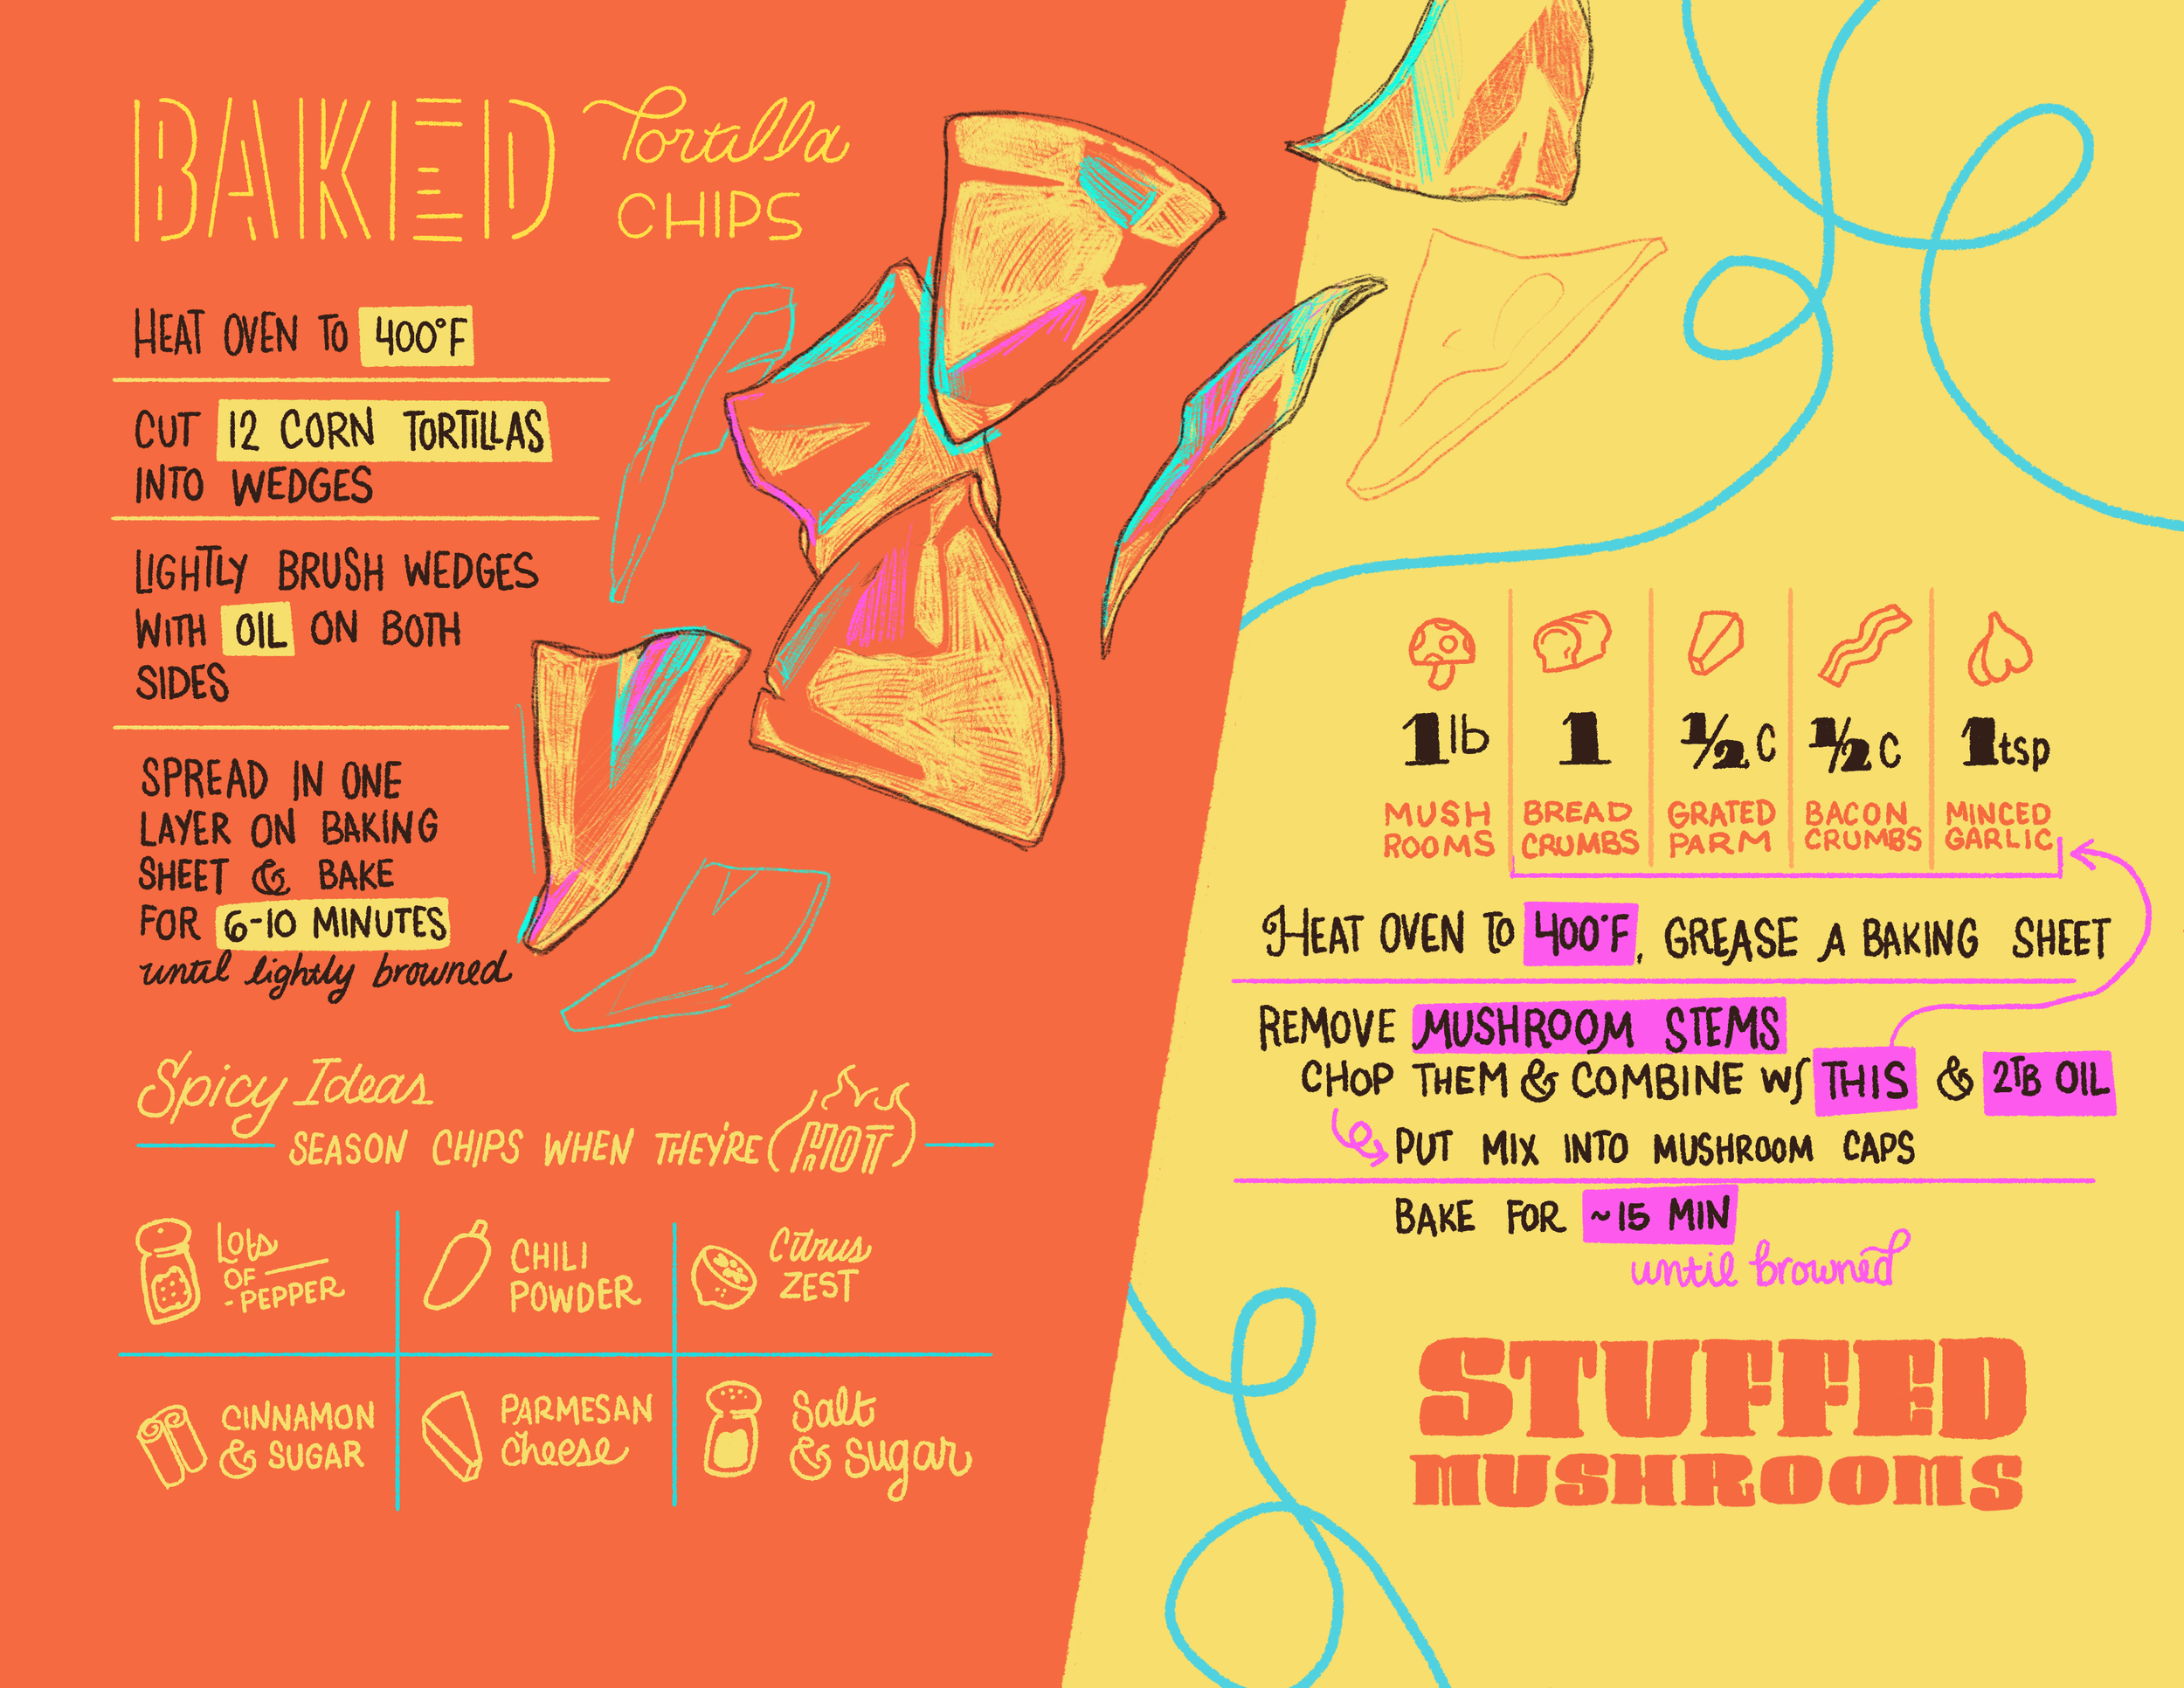 BAKED Tortilla
CHIPS
HEAT OVEN TO 400°F
CUT 12 CORN TORTILLAS
INTO WEDGES
LIGHTLY BRUSH WEDGES
WITH OIL ON BOTH
SIDES
SPREAD IN ONE
LAYER ON BAKING
SHEET & BAKE
FOR 6-10 MINUTES
until lightly browned
Spicy Ideas
SEASON CHIPS WHEN THEY'RE HOT
Lots
OF
-PEPPER
CHILI
POWDER
Citrus
ZEST
CINNAMON
& SUGAR
PARMESAN
cheese
Salt
& sugar
1lb
MUSH
ROOMS
1
BREAD
CRUMBS
½ C
GRATED
PARM
½ C
BACON
CRUMBS
1tsp
MINCED
GARLIC
HEAT OVEN TO 400°F, GREASE A BAKING SHEET
REMOVE MUSHROOM STEMS
CHOP THEM & COMBINE W/ THIS & 2TB OIL
PUT MIX INTO MUSHROOM CAPS
BAKE FOR ~15 MIN
until browned
STUFFED
MUSHROOMS